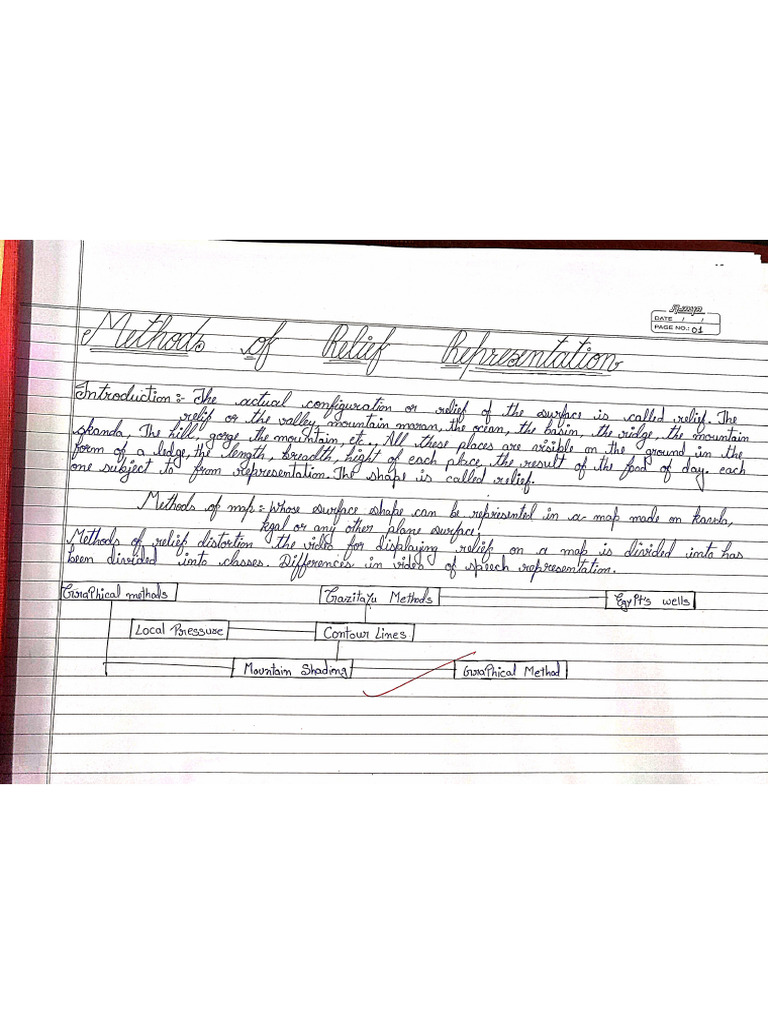 DATE / /
PAGE NO.: 01
Methods of Relief Representation
Introduction:- The actual configuration or relief of the surface is called relief. The
relif or the valley, mountain moran, the ocian, the basin, the ridge, the mountain
skanda, The hill, gorge the mountain, etc., All these places are visible on the ground in the
form of a ledge, the length, breadth, hight of each place, the result of the food of day. each
one subject to from representation. The shape is called relief.
Methods of map:- whose surface shape can be represented in a map made on
or any other plane surface.
Methods of relief distortion the video for displaying relief on a map is divided into has
been divided into classes. Differences in video of speech representation.
Graphical methods Methods Egypt's wells
Local Pressure Contour Lines
Mountain Shading Graphical Method